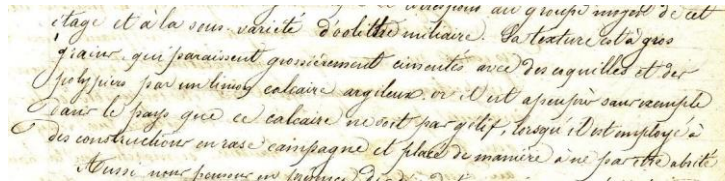 correspond au groupe moyen de cet
étage et à la sous-variété d'oolithe miliaire. Sa texture est à gros
grains, qui paraissent grossièrement cimentés avec des coquilles et des
polypiers par un limon calcaire argileux. or il est apeuprès sans exemple
dans le pays que ce calcaire ne soit pas gélif, lorsqu'il est employé à
des constructions en rase campagne et placé de manière à ne pas être abrité
Aussi nous pensons en présence de